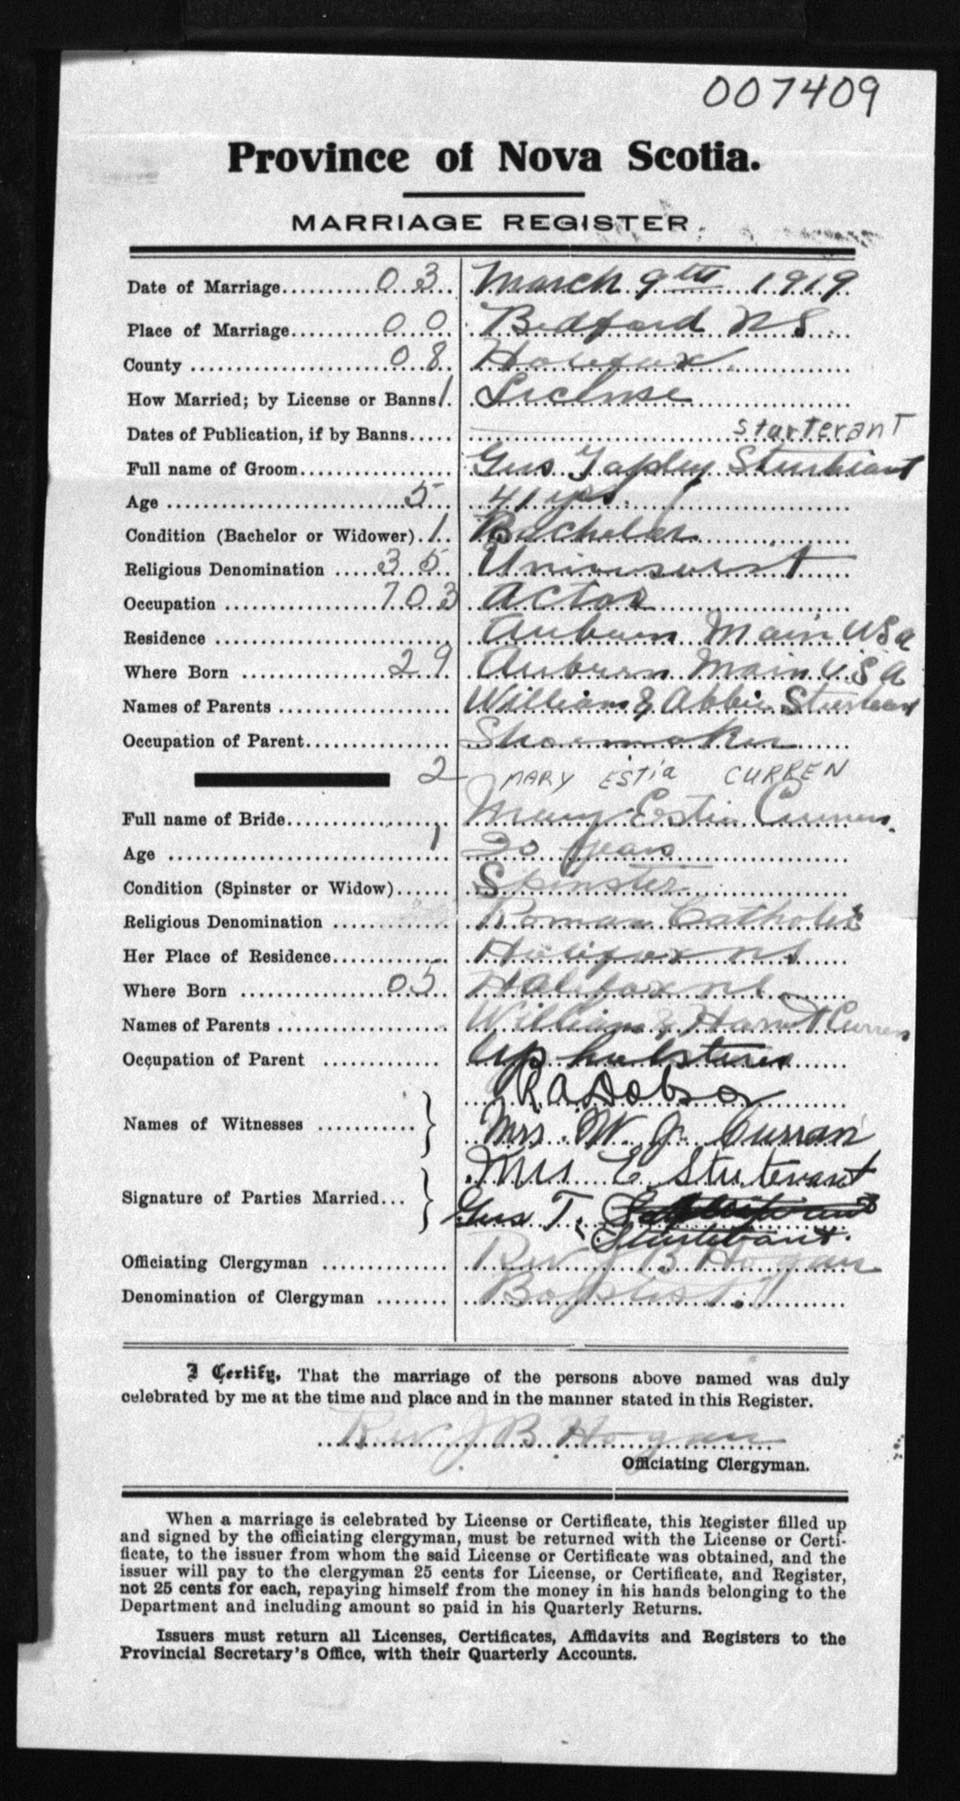 007409
Province of Nova Scotia.
MARRIAGE REGISTER.
Date of Marriage.......... 03 March 9th 1919
Place of Marriage.......... 00 Bedford NS
County .......... 08 Halifax
How Married; by License or Banns 1. License
Dates of Publication, if by Banns.....
Starterant
Full name of Groom.......... Gus Tapley Sturtevant
Age .......... 5 41 yrs.
Condition (Bachelor or Widower) 1. Bachelor
Religious Denomination ..... 35 Universalist
Occupation .......... 703 Actor
Residence .......... Auburn Main USA
Where Born .......... 29 Auburn Main USA
Names of Parents .......... William & Abbie Sturtevant
Occupation of Parent.......... Shoemaker
2 MARY ESTia CURREN
Full name of Bride.......... Mary Estie Curren
Age .......... 1 20 years
Condition (Spinster or Widow)...... Spinster
Religious Denomination .......... Roman Catholic
Her Place of Residence.......... Halifax NS
Where Born .......... 05 Halifax NS
Names of Parents .......... William & Curren
Occupation of Parent ..........
Names of Witnesses .......... R A Dobson
Mrs. W. J. Curran
Signature of Parties Married... Mrs E Stutevant
Gus T.
Sturtevant.
Officiating Clergyman .......... Rev J B Hogan
Denomination of Clergyman ........ Baptist
I Certify, That the marriage of the persons above named was duly
celebrated by me at the time and place and in the manner stated in this Register.
Rev J B Hogan
Officiating Clergyman.
When a marriage is celebrated by License or Certificate, this Register filled up
and signed by the officiating clergyman, must be returned with the License or Certi-
ficate, to the issuer from whom the said License or Certificate was obtained, and the
issuer will pay to the clergyman 25 cents for License, or Certificate, and Register,
not 25 cents for each, repaying himself from the money in his hands belonging to the
Department and including amount so paid in his Quarterly Returns.
Issuers must return all Licenses, Certificates, Affidavits and Registers to the
Provincial Secretary's Office, with their Quarterly Accounts.